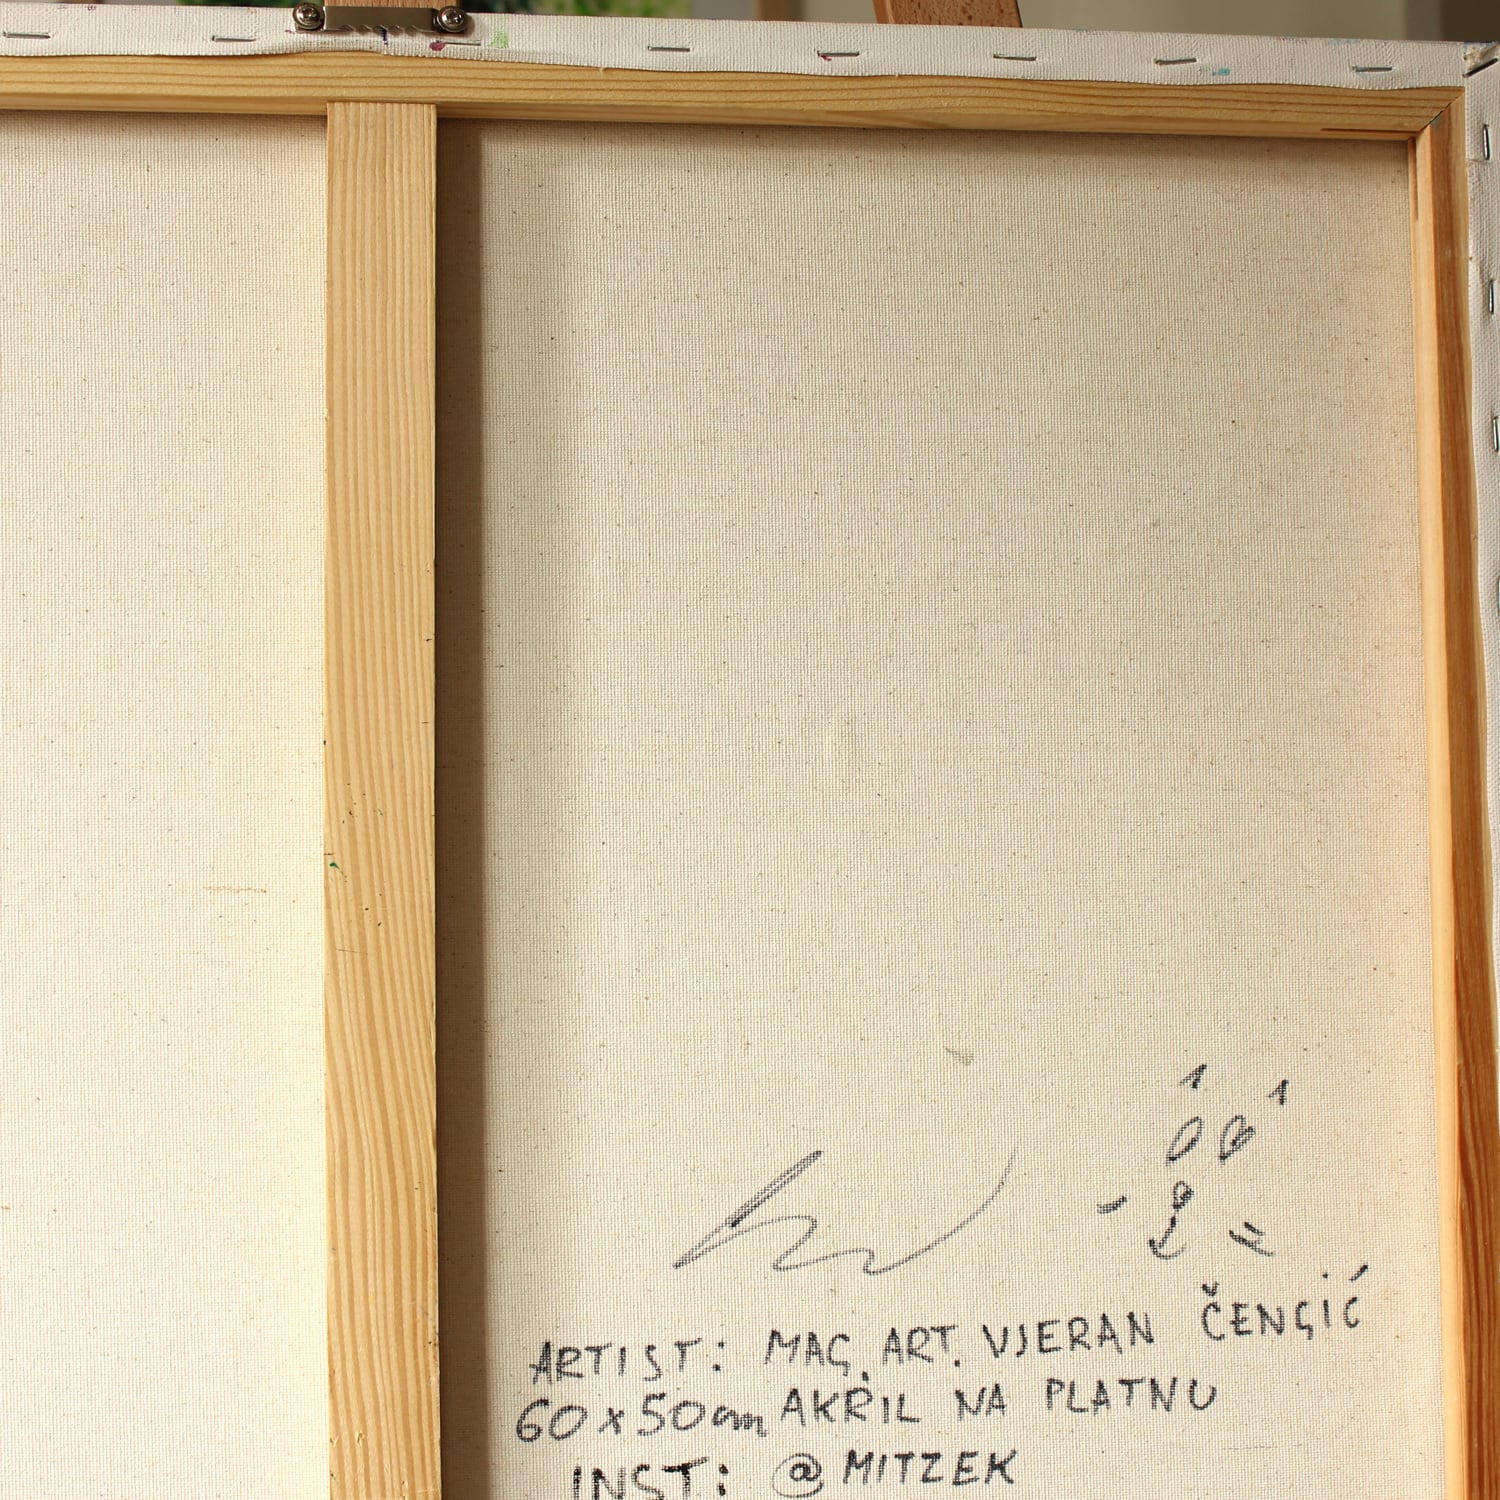 ARTIST: MAG. ART. VJERAN ČENGIĆ
60x50cm AKRIL NA PLATNU
INST: @MITZEK